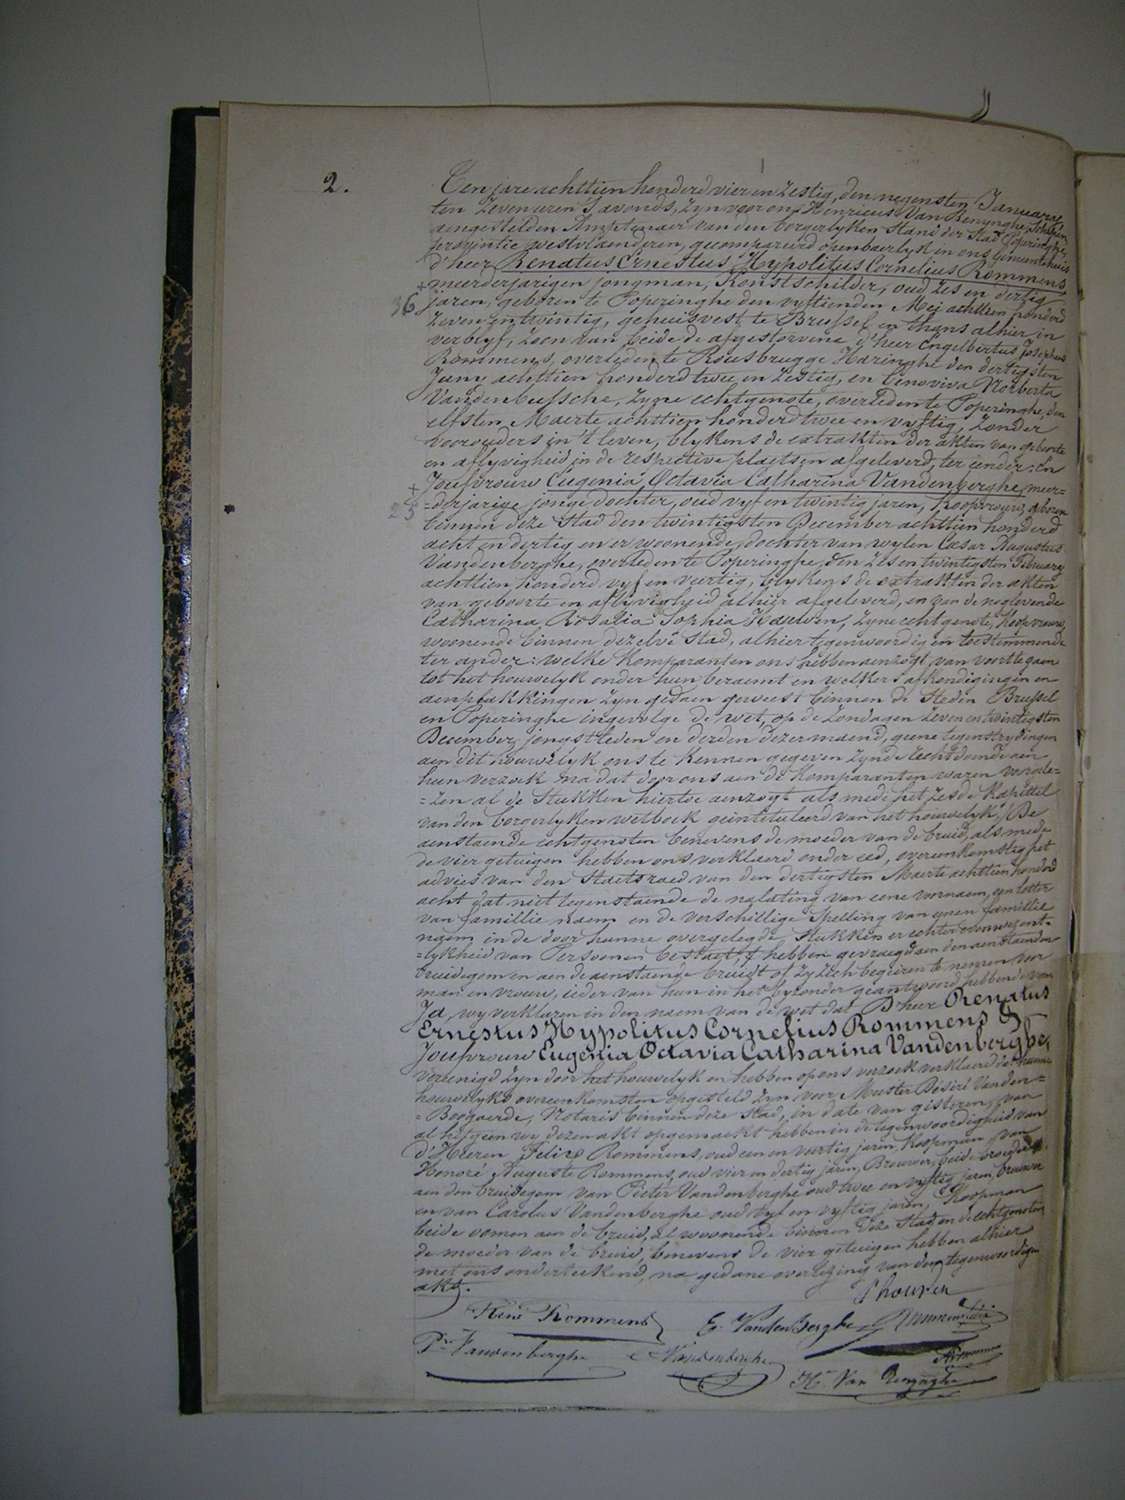 2.
Ten jare achttien honderd vier en zestig, den negensten January
ten zeven uren s'avonds, zyn voor ons Henricus Van Renynghe, Schepen
aengestelden Amptenaer van den borgerlyken stand der Stad Poperinghe,
provintie westvlaenderen, gecompareerd openbaerlyk in ons gemeentehuis
d'heer Renatus Ernestus Hypolitus Cornelius Rommens
meerderjarigen jongman, Konstschilder, oud zes en dertig
36 jaren, geboren te Poperinghe den vyftienden Mei achttien honderd
zeven en twintig, gehuisvest te Brussel en thans alhier in
verblyf, zoon van beide de afgestorvene d'heer Engelbertus Josephus
Rommens, overleden te Rousbrugge Haringhe den dertigsten
Juny achttien honderd twee en zestig, en Genoviva Norberta
Vandenbussche, zyne echtgenote, overleden te Poperinghe, den
elfsten Maerte achttien honderd twee en vyftig, zonder
voorouders in 't leven, blykens de extrakten der akten van geboorte
en aflyvigheid in de respective plaetsen afgeleverd, ter eender: En
Joufvrouw Eugenia Octavia Catharina Vandenberghe, meer=
25 =derjarige jonge dochter, oud vyf en twintig jaren, Koopvrouw, geboren
binnen deze Stad den twintigsten December achttien honderd
acht en dertig en er woonende, dochter van wylen Cæsar Augustus
Vandenberghe, overleden te Poperinghe, den zes en twintigsten February
achttien honderd vyf en veertig, blykens de extrakten der akten
van geboorte en aflyvigheid alhier afgeleverd, en van de noglevende
Catharina Rosalia Sophia Haelwen, zyne echtgenote, Koopvrouw,
woonende binnen dezelve stad, alhier tegenwoordig en toestemmende
ter ander: welke Komparanten ons hebben aenzogt van voort te gaen
tot het houwelyk onder hun beraemt en welkers afkondigingen en
aenplakkingen zyn gedaen geweest binnen de Steden Brussel
en Poperinghe ingevolge de wet, op de zondagen zeven en twintigsten
December jongstleden en derden dezer maend, geene tegenstrydingen
aen dit houwelyk ons te kennen gegeven zynde Rechtdoende aen
hun verzoek na dat door ons aen de Komparanten waren voorle=
=zen al de stukken hiertoe aenzogt als mede het zesde Kapittel
van den borgerlyken wetboek geintituleerd van het houwelyk, De
aenstaende echtgenoten benevens de moeder van de bruid, als mede
de vier getuigen hebben ons verklaerd onder eed, overeenkomstig het
advies van den Staetsraed van den dertigsten Maerte achttien honderd
acht dat niet tegenstaende de nalating van eene vornaem, een letter
van famillie naem en de verschillige spelling van eenen famillie
naem in de door hunne overgelegde stukken er echter eenwezent=
=lykheid van Persoonen bestaet, hebben gevraegd aen den aenstaenden
bruidegom en aen de aenstaende bruid of zy zich begeiren te nemen voor
man en vrouw, ieder van hun in het byzonder geantwoord hebbende van
Ja, wy verklaren in den naem van de wet dat D'heer Renatus
Ernestus Hypolitus Cornelius Rommens &
Joufvrouw Eugenia Octavia Catharina Vandenberghe,
vereenigd zyn door het houwelyk en hebben op ons verzoek verklaerd dat hunne
houwelyks overeenkomsten opgesteld zyn voor Meester Desiré Vanden=
=Boogaerde, Notaris binnen deze Stad, in date van gisteren, van
al hetgeen wy dezen akt opgemaekt hebben in de tegenwoordigheid van
d'Heeren Felix Rommens, oud een en veertig jaren, Koopman, van
Honoré Auguste Rommens, oud vier en dertig jaren, Brouwer, beide broeders
aen den bruidegom van Pieter Vandenberghe oud twee en vyftig jaren, brouwer
en van Carolus Vandenberghe oud vyf en vyftig jaren, Koopman
beide oomen aen de bruid, al woonende binnen deze Stad en de echtgenoten
de moeder van de bruid, benevens de vier getuigen hebben alhier
met ons onderteekend, na gedane overlezing van den tegenwoordigen
akt.
René Rommens E. Vandenberghe
Pr Vandenberghe C. Vandenberghe
H. Van Renynghe